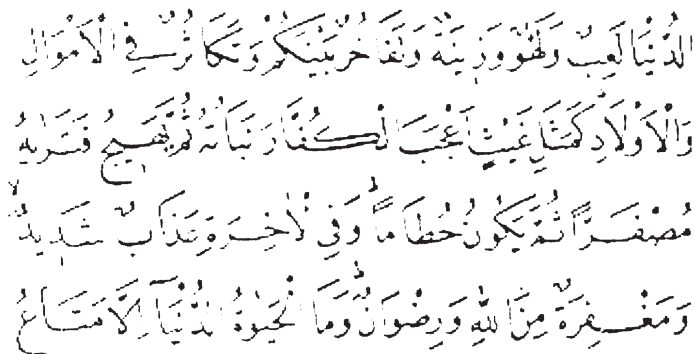 الدُّنْيَا لَعِبٌ وَلَهْوٌ وَزِينَةٌ وَتَفَاخُرٌ بَيْنَكُمْ وَتَكَاثُرٌ فِي الْأَمْوَالِ
وَالْأَوْلَادِ كَمَثَلِ غَيْثٍ أَعْجَبَ الْكُفَّارَ نَبَاتُهُ ثُمَّ يَهِيجُ فَتَرَىٰهُ
مُصْفَرًّا ثُمَّ يَكُونُ حُطَامًا وَفِي الْآخِرَةِ عَذَابٌ شَدِيدٌ
وَمَغْفِرَةٌ مِنَ اللهِ وَرِضْوَانٌ وَمَا الْحَيٰوةُ الدُّنْيَآ إِلَّا مَتَاعُ